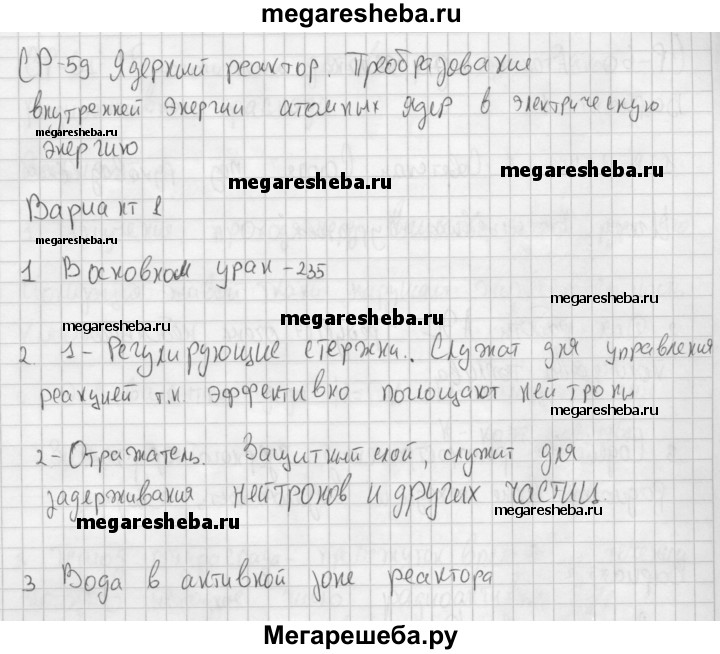 megaresheba.ru
СР-59 Ядерный реактор. Преобразование
внутренней энергии атомных ядер в электрическую
megaresheba.ru
энергию
megaresheba.ru
Вариант 1
megaresheba.ru
1 В основном уран-235
megaresheba.ru
megaresheba.ru
megaresheba.ru
2. 1-Регулирующие стержни. Служат для управления
реакцией т.к. эффективно поглощают нейтроны
megaresheba.ru
2-Отражатель. Защитный слой, служит для
задерживания нейтронов и других частиц.
megaresheba.ru
megaresheba.ru
3 Вода в активной зоне реактора
Мегарешеба.ру